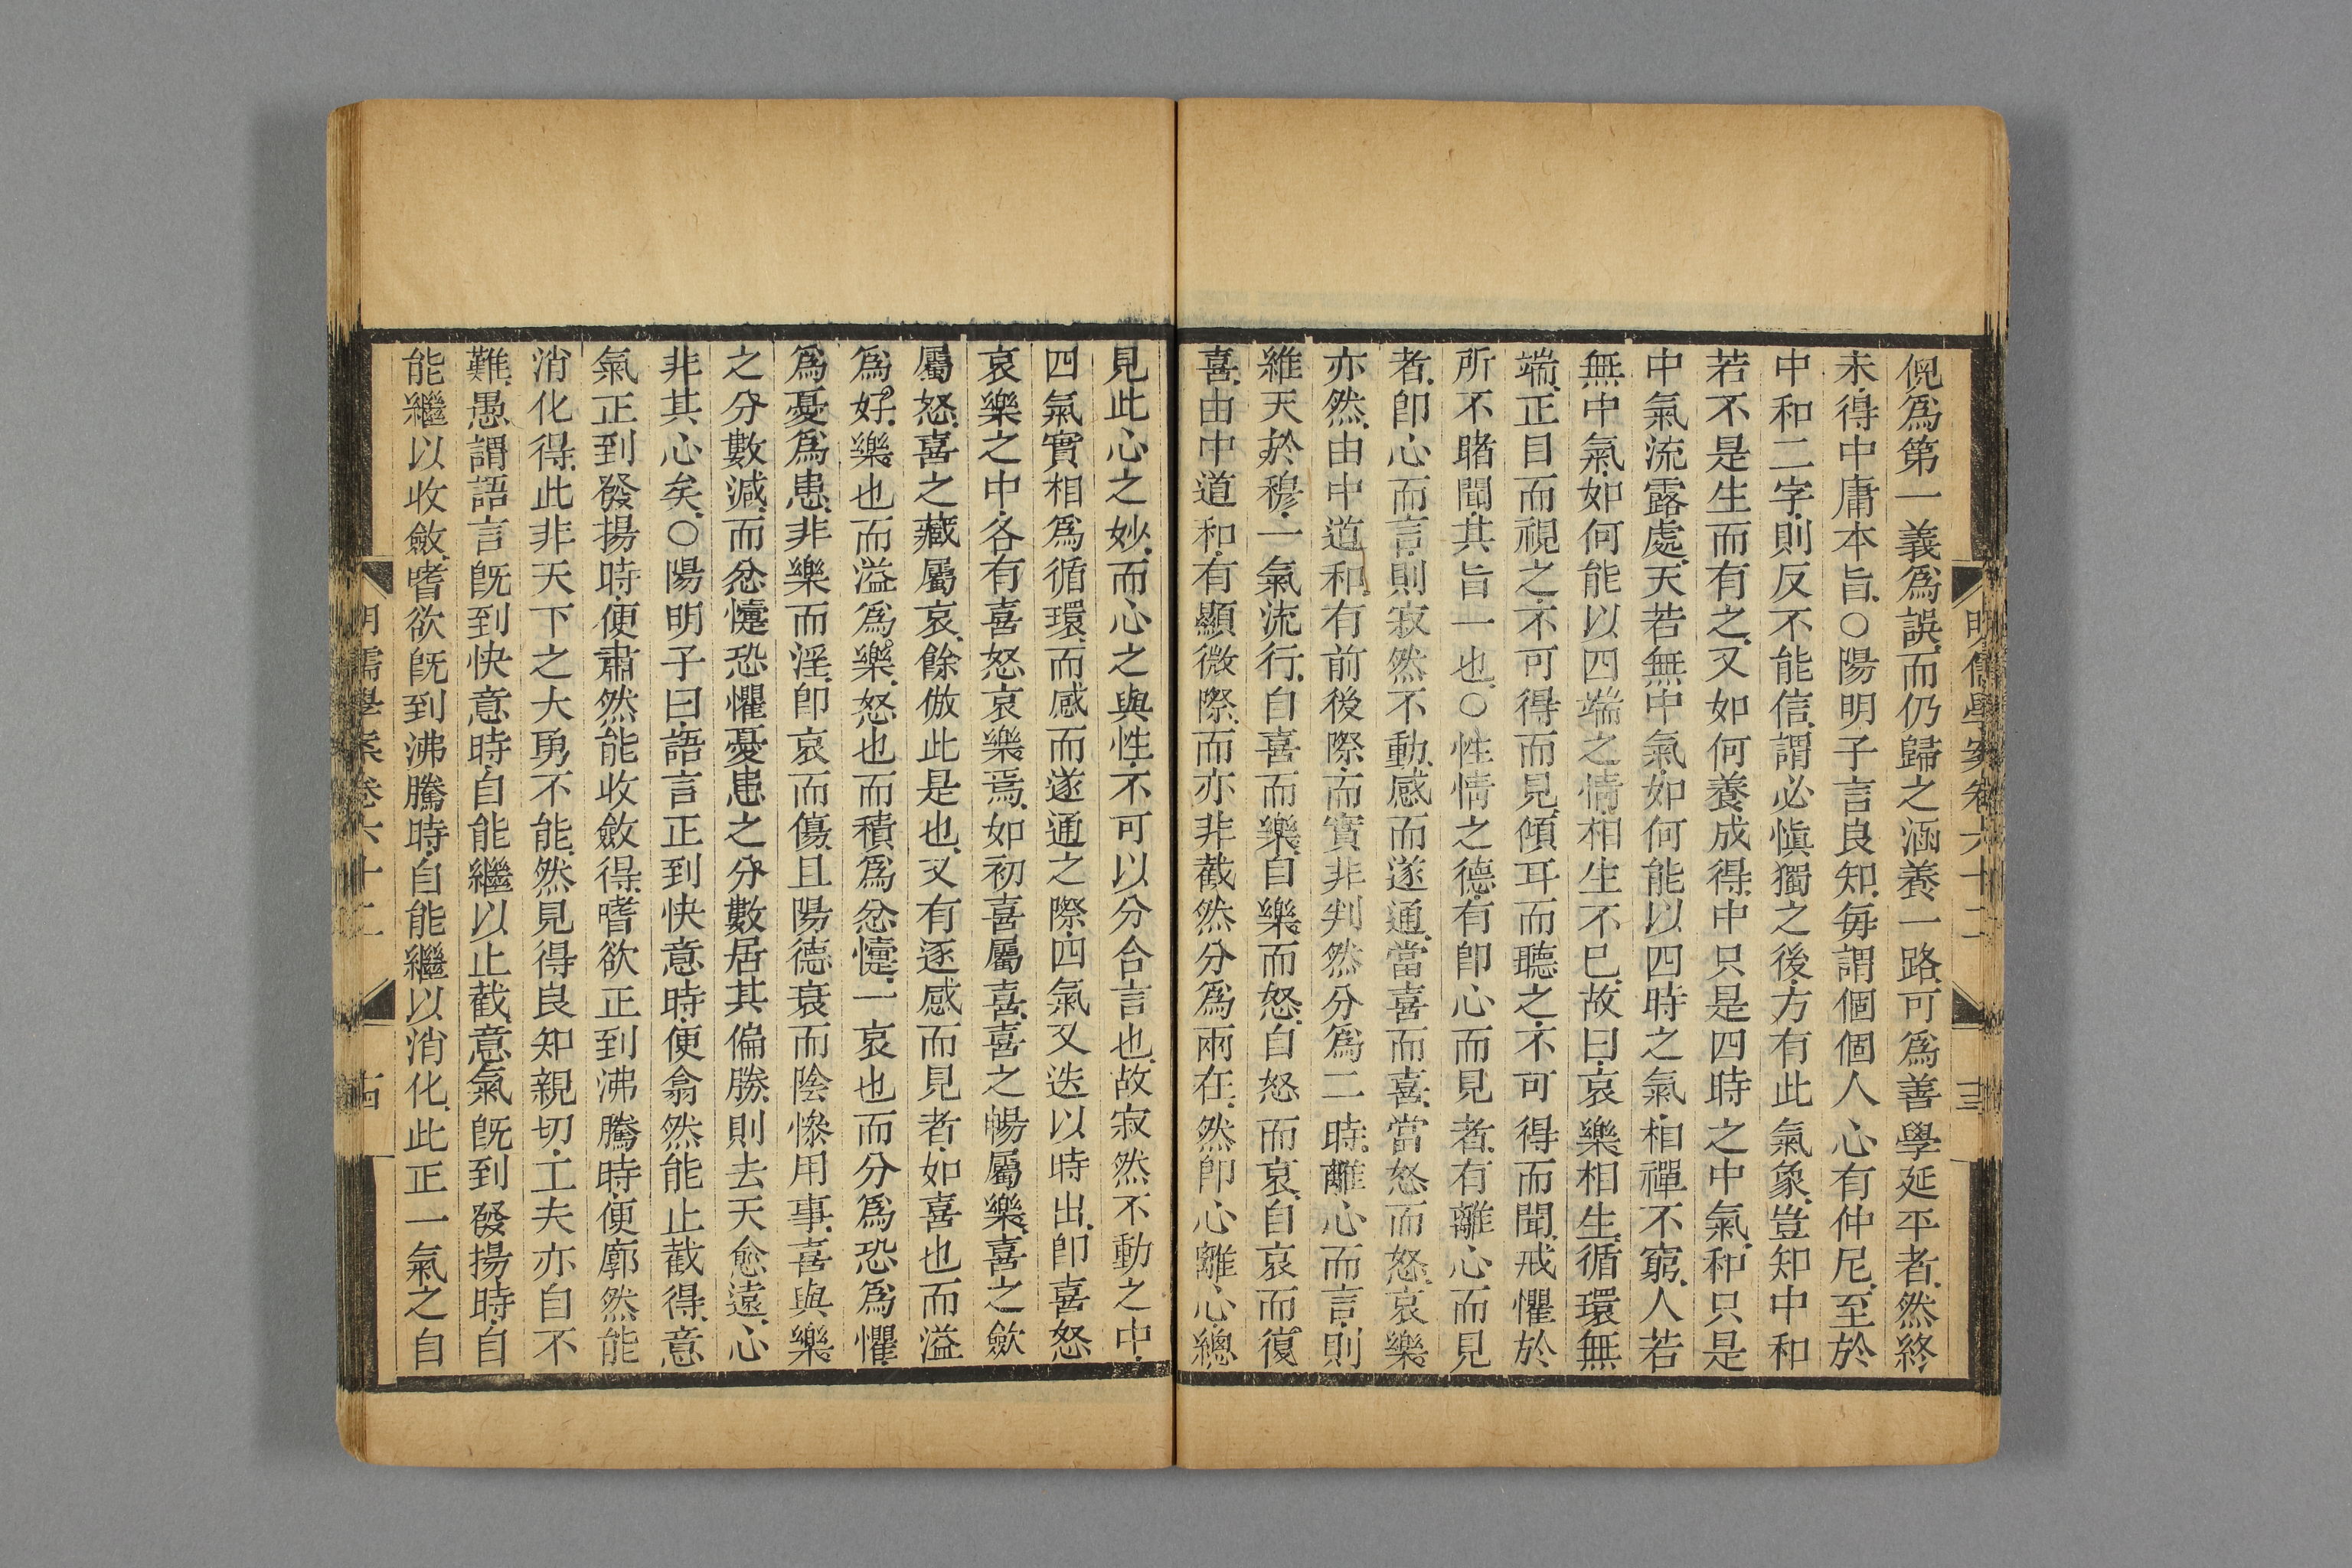 明儒學案卷六十二 十三
倪爲第一義爲誤而仍歸之涵養一路可爲善學延平者然終
未得中庸本旨○陽明子言良知每謂個個人心有仲尼至於
中和二字則反不能信謂必慎獨之後方有此氣象豈知中和
若不是生而有之又如何養成得中只是四時之中氣和只是
中氣流露處天若無中氣如何能以四時之氣相禪不窮人若
無中氣如何能以四端之情相生不已故曰哀樂相生循環無
端正目而視之不可得而見傾耳而聽之不可得而聞戒懼於
所不睹聞其旨一也○性情之德有卽心而見者有離心而見
者卽心而言則寂然不動感而遂通當喜而喜當怒而怒哀樂
亦然由中道和有前後際而實非判然分爲二時離心而言則
維天於穆一氣流行自喜而樂自樂而怒自怒而哀自哀而復
喜由中道和有顯微際而亦非截然分爲兩在然卽心離心總
見此心之妙而心之與性不可以分合言也故寂然不動之中
四氣實相爲循環而感而遂通之際四氣又迭以時出卽喜怒
哀樂之中各有喜怒哀樂焉如初喜屬喜喜之暢屬樂喜之斂
屬怒喜之藏屬哀餘倣此是也又有逐感而見者如喜也而溢
爲好樂也而溢爲樂怒也而積爲忿懥一哀也而分爲恐爲懼
爲憂爲患非樂而淫卽哀而傷且陽德衰而陰慘用事喜與樂
之分數減而忿懥恐懼憂患之分數居其偏勝則去天愈遠心
非其心矣○陽明子曰語言正到快意時便翕然能止截得意
氣正到發揚時便肅然能收斂得嗜欲正到沸騰時便廓然能
消化得此非天下之大勇不能然見得良知親切工夫亦自不
難愚謂語言旣到快意時自能繼以止截意氣旣到發揚時自
能繼以收斂嗜欲旣到沸騰時自能繼以消化此正一氣之自
明儒學案卷六十二 十四